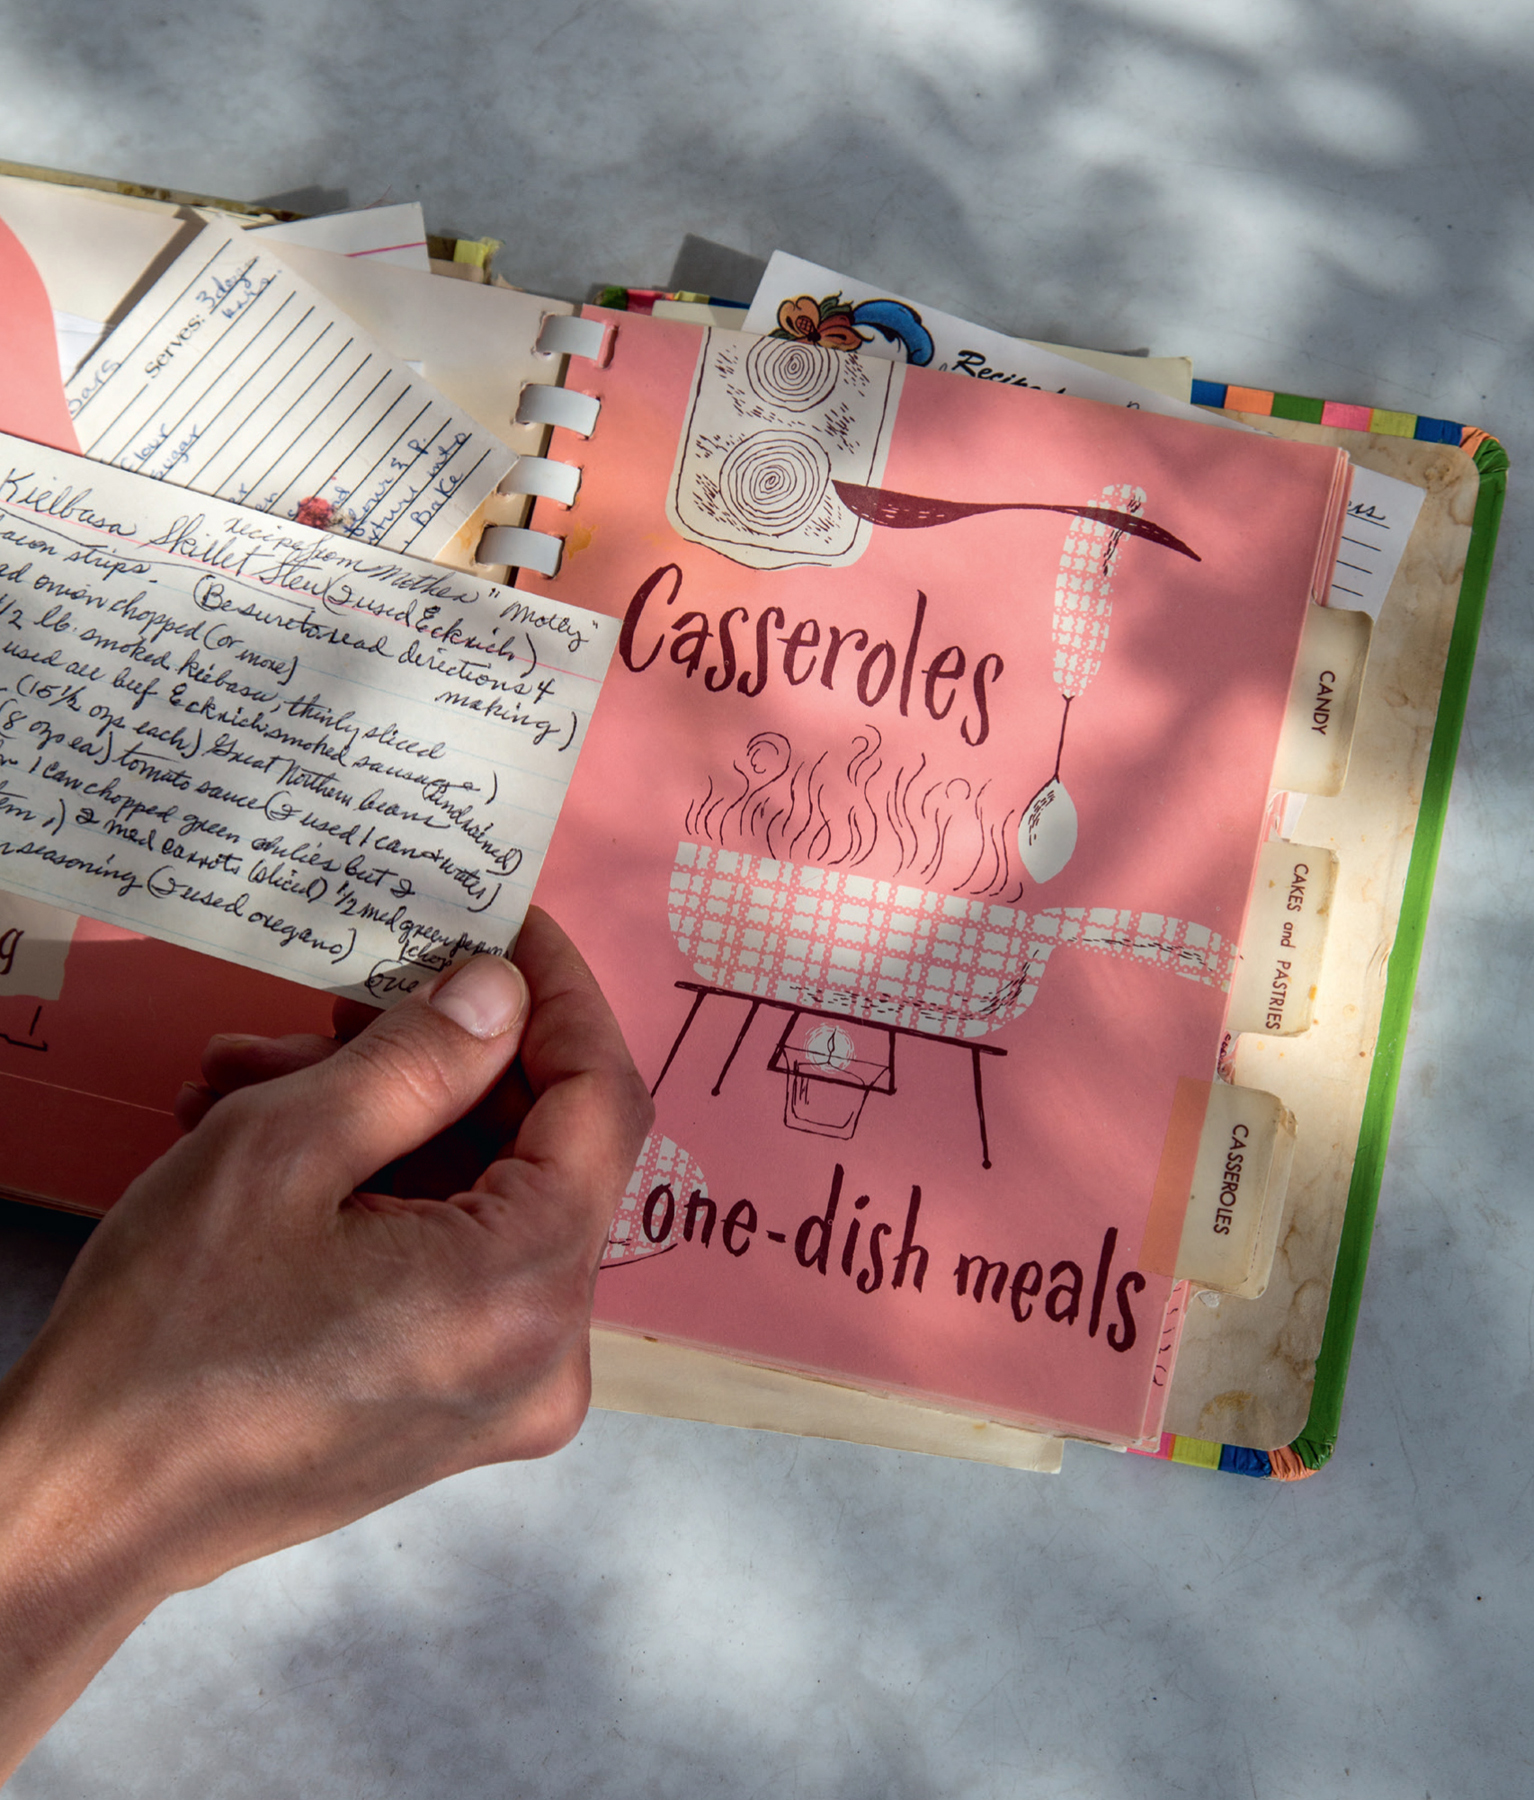 Serves: 3 doz
bars
Bars
flour
sugar
Bake
Recipe
Kielbasa Skillet Stew (I used Eckrich)
recipe from Mother "Molly"
bacon strips. (Be sure to read directions &
making)
onion chopped (or more)
1/2 lb. smoked kielbasa, thinly sliced
used all beef Eckrich smoked sausage)
(15 1/2 ozs each) Great Northern beans (undrained)
(8 ozs ea) tomato sauce (I used 1 can + water)
1 can chopped green chilies but I
2 med carrots (sliced) 1/2 med green pepper
(chop
seasoning (I used oregano)
(ove
g
Casseroles
one-dish meals
CANDY
CAKES and PASTRIES
CASSEROLES